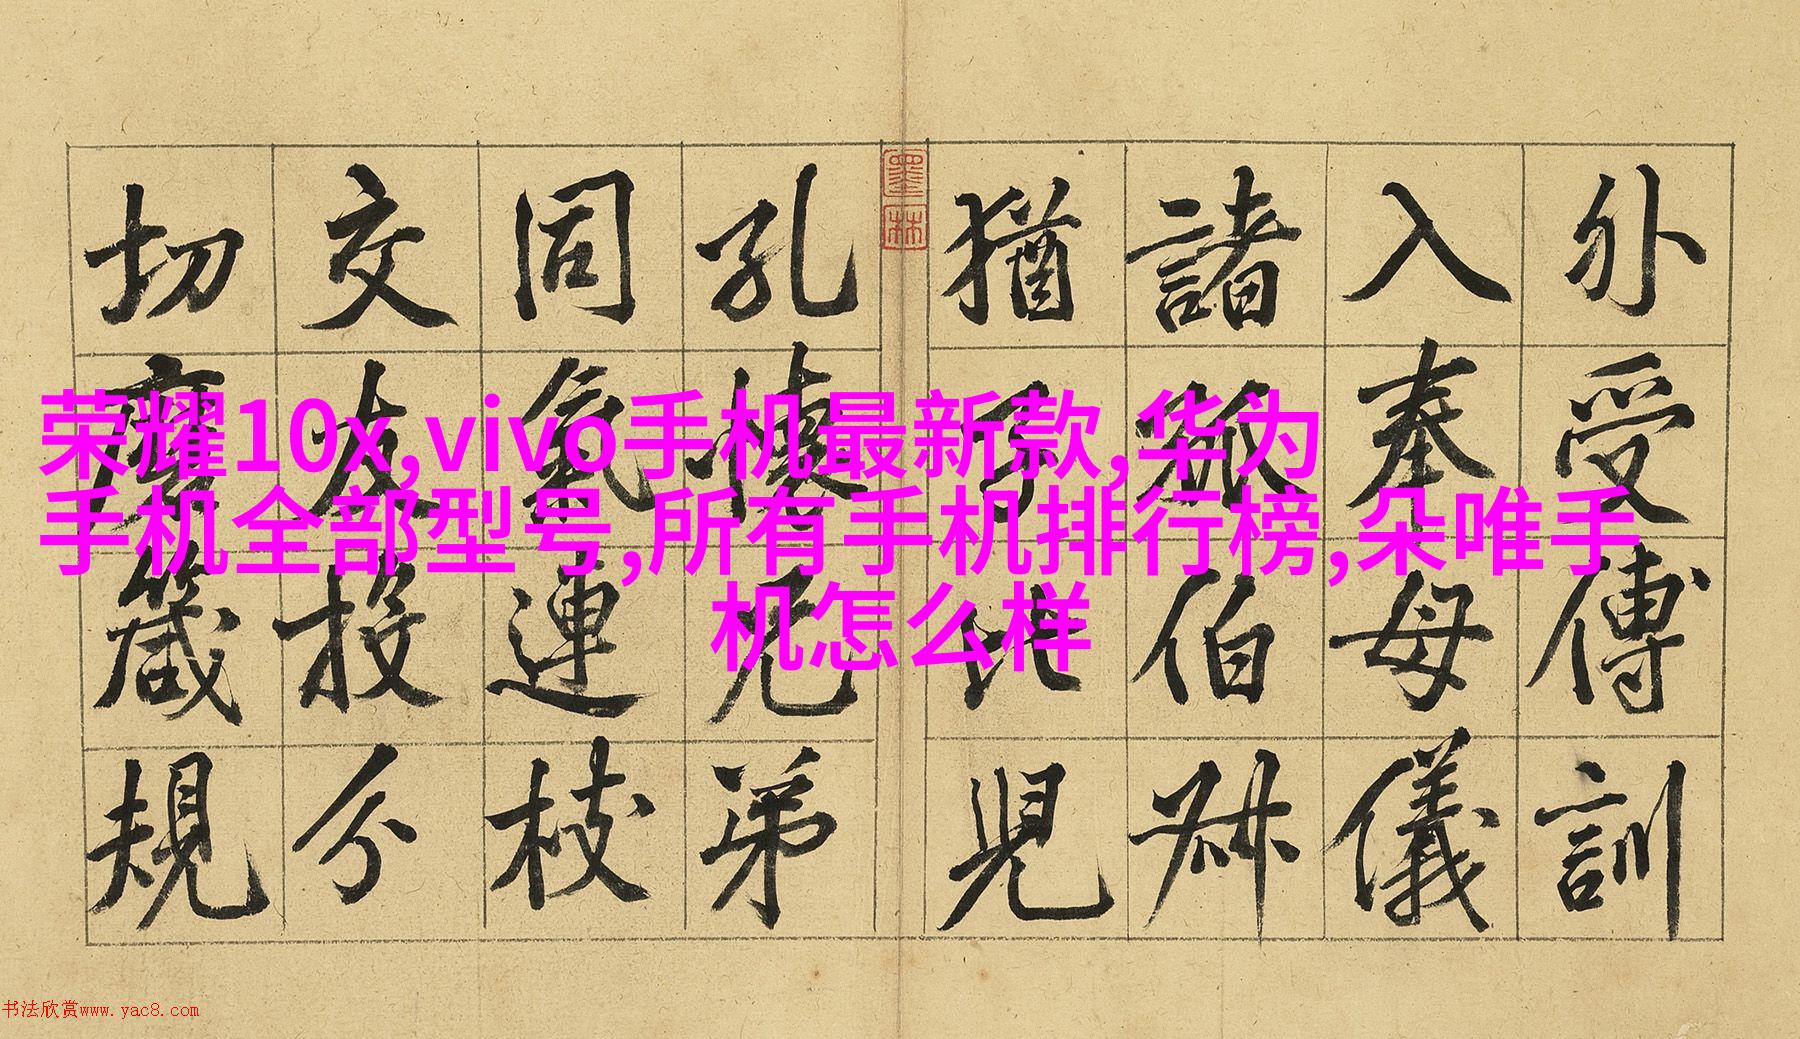 外受傅訓
入奉母儀
諸姑伯叔
猶子比兒
孔懷兄弟
同氣連枝
交友投分
切磨箴規
墨林
荣耀10x,vivo手机最新款,华为
手机全部型号,所有手机排行榜,朵唯手
机怎么样
书法欣赏www.yac8.com